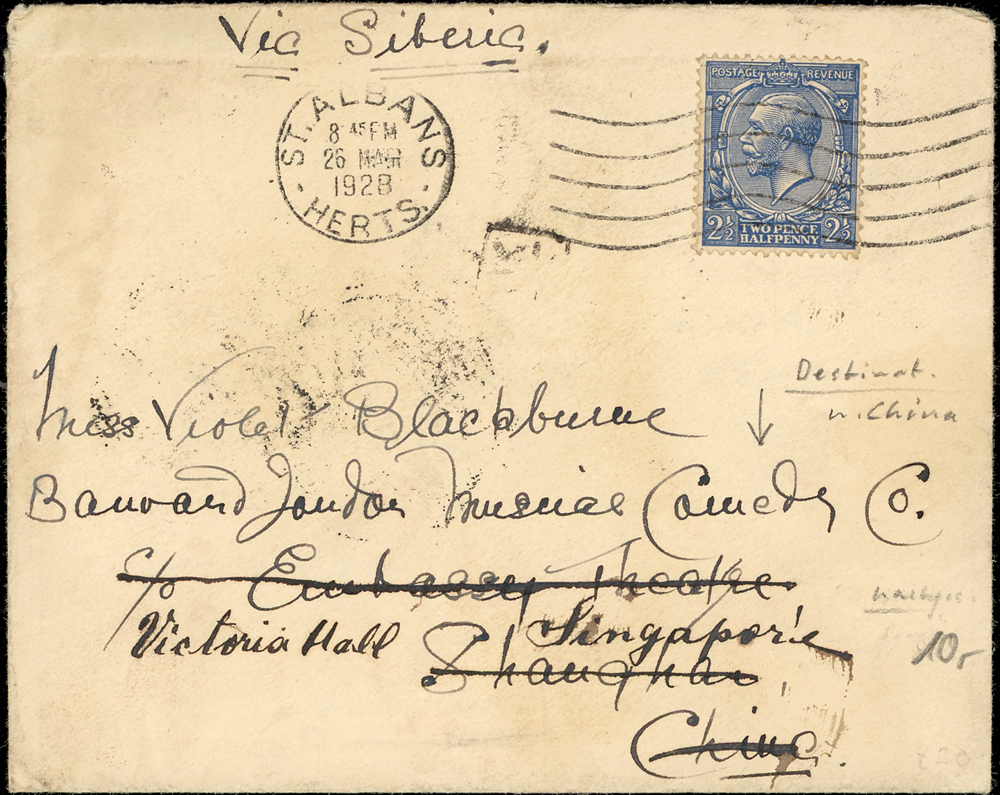 Via Siberia.
ST. ALBANS
8 45 PM
26 MAR
1928
HERTS.
POSTAGE REVENUE
2½ TWO PENCE HALFPENNY 2½
Destinat.
n. China
Miss Violet Blackburne
Banvard London Musical Comedy Co.
c/o Embassy Theatre.
Victoria Hall Singapore
Shanghai,
China.
10,-
£20